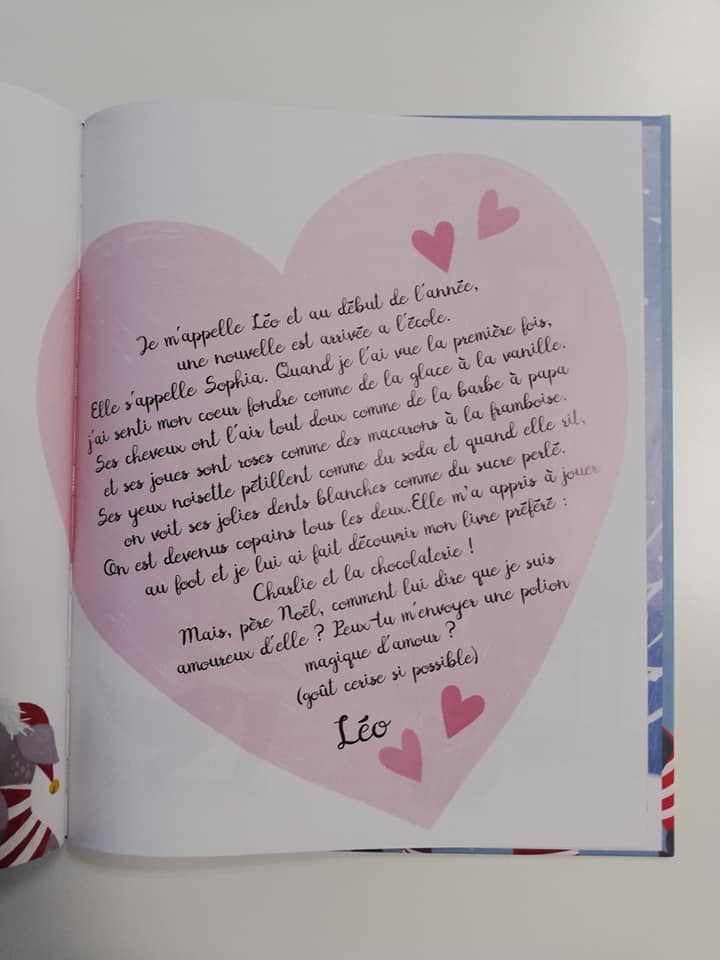 Je m'appelle Léo et au début de l'année,
une nouvelle est arrivée a l'école.
Elle s'appelle Sophia. Quand je l'ai vue la première fois,
j'ai senti mon coeur fondre comme de la glace à la vanille.
Ses cheveux ont l'air tout doux comme de la barbe à papa
et ses joues sont roses comme des macarons à la framboise.
Ses yeux noisette pétillent comme du soda et quand elle rit,
on voit ses jolies dents blanches comme du sucre perlé.
On est devenus copains tous les deux.Elle m'a appris à jouer
au foot et je lui ai fait découvrir mon livre préféré :
Charlie et la chocolaterie !
Mais, père Noël, comment lui dire que je suis
amoureux d'elle ? Peux-tu m'envoyer une potion
magique d'amour ?
(goût cerise si possible)
Léo